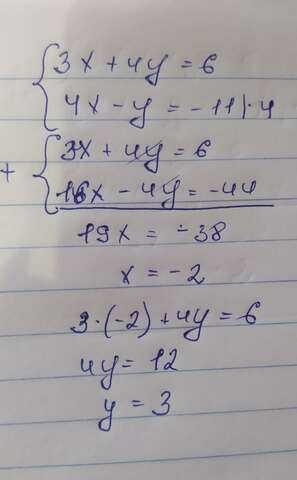 3x + 4y = 6
4x - y = -11 | · 4
+
3x + 4y = 6
16x - 4y = -44
19x = -38
x = -2
3 · (-2) + 4y = 6
4y = 12
y = 3